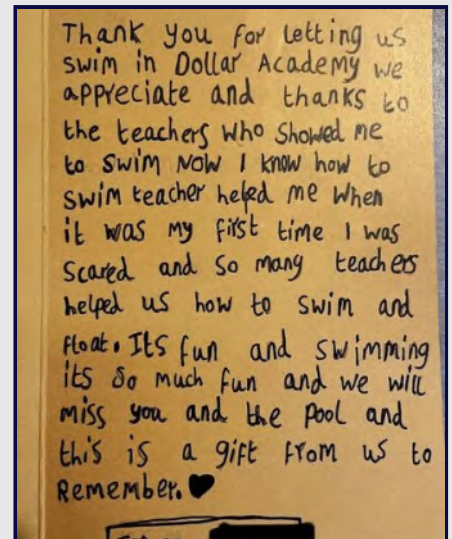 Thank you for letting us
swim in Dollar Academy we
appreciate and thanks to
the teachers who showed me
to swim Now I know how to
swim teacher helped me when
it was my first time I was
scared and so many teachers
helped us how to swim and
float. Its fun and swimming
its so much fun and we will
miss you and the pool and
this is a gift from us to
Remember.